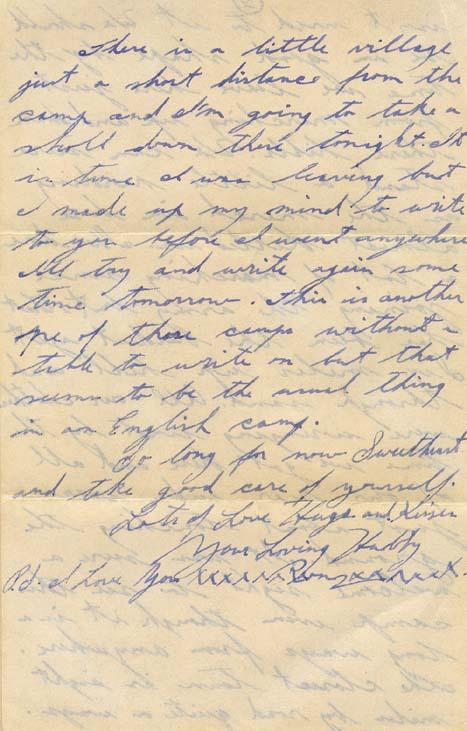 There is a little village
just a short distance from the
camp and I'm going to take a
stroll down there tonight. It
is time I was leaving but
I made up my mind to write
to you before I went anywhere
I'll try and write again some
time tomorrow. This is another
one of those camps without a
table to write on but that
seems to be the usual thing
in an English camp.
So long for now Sweetheart
and take good care of yourself.
Lots of Love Hugs and Kisses
Your Loving Hubby
P.S. I Love You xxxxx xxxxxx.